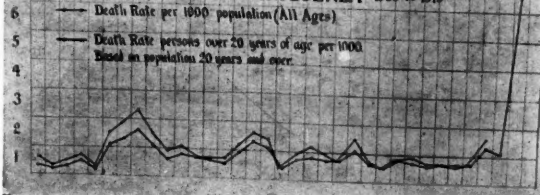 6
Death Rate per 1000 population (All Ages)
5
Death Rate persons over 20 years of age per 1000
Based on population 20 years and over.
4
3
2
1